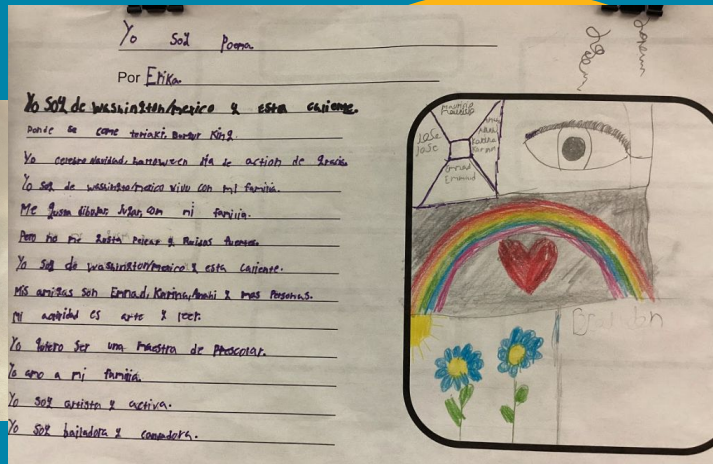 Yo Soy Poema
Por Erika
Yo Soy de washington/mexico y esta caliente.
Donde se come teriaki Burgur King.
Yo celebro navidad, halloween dia de action de gracia
Yo soy de washington/mexico vivo con mi familia.
Me gusta dibujar Jugar con mi familia.
Pero no me gusta pelear y Ruidos fuertes.
Yo soy de washington/mexico y esta caliente.
Mis amigas son Emnad, Karina, Anahi y mas Personas.
Mi actividad es arte y leer.
Yo quiero Ser una maestra de Prescolar.
Yo amo a mi familia.
Yo soy artista y activa.
Yo soy bailadora y
Jose
Jose
Brandon